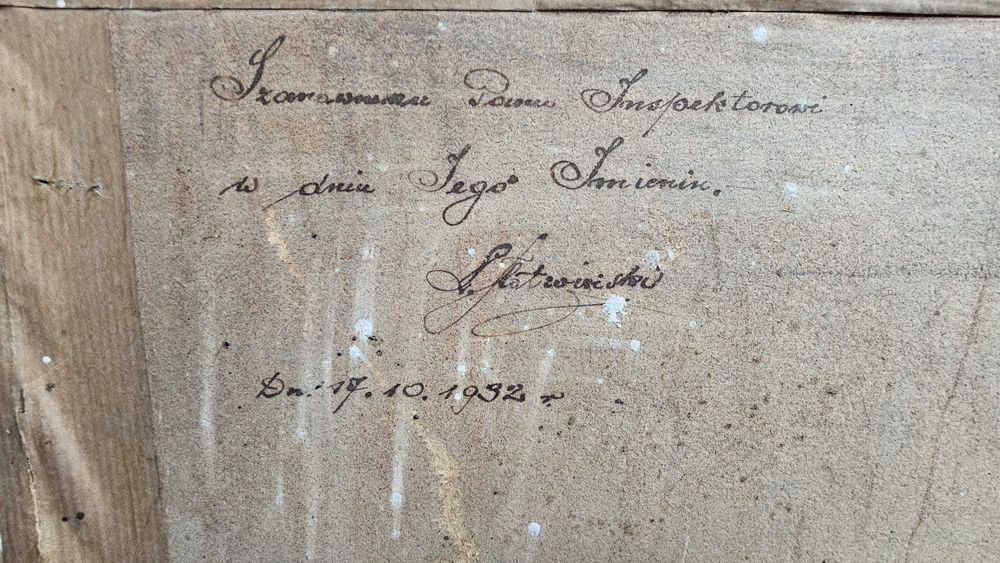 Szanownemu Panu Inspektorowi
w dniu Jego Imienin.
Dn. 17.10.1932 r